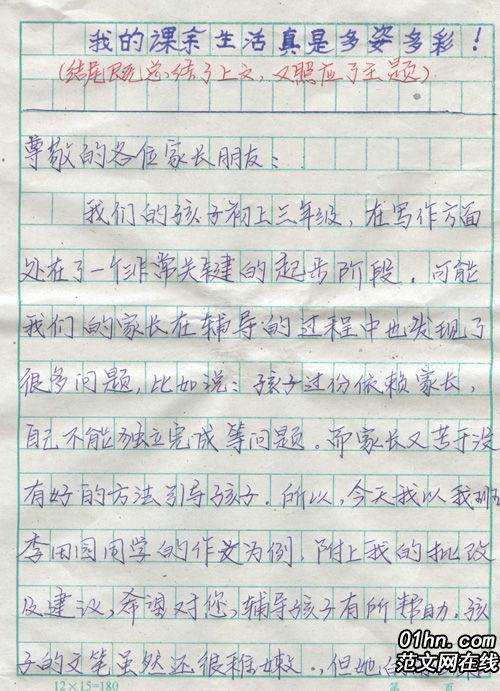 我的课余生活真是多姿多彩!
(结尾既总结了上文,又照应了主题)
尊敬的各位家长朋友:
我们的孩子初上三年级,在写作方面
处在了一个非常关键的起步阶段。可能
我们的家长在辅导的过程中也发现了
很多问题,比如说:孩子过份依赖家长,
自己不能独立完成等问题。而家长又苦于没
有好的方法引导孩子.所以,今天我以我班
李田园同学的作文为例,附上我的批改
及建议,希望对您,辅导孩子有所帮助.孩
子的文笔虽然还很稚嫩.,但她
01hn.com
范文网在线
12×15=180